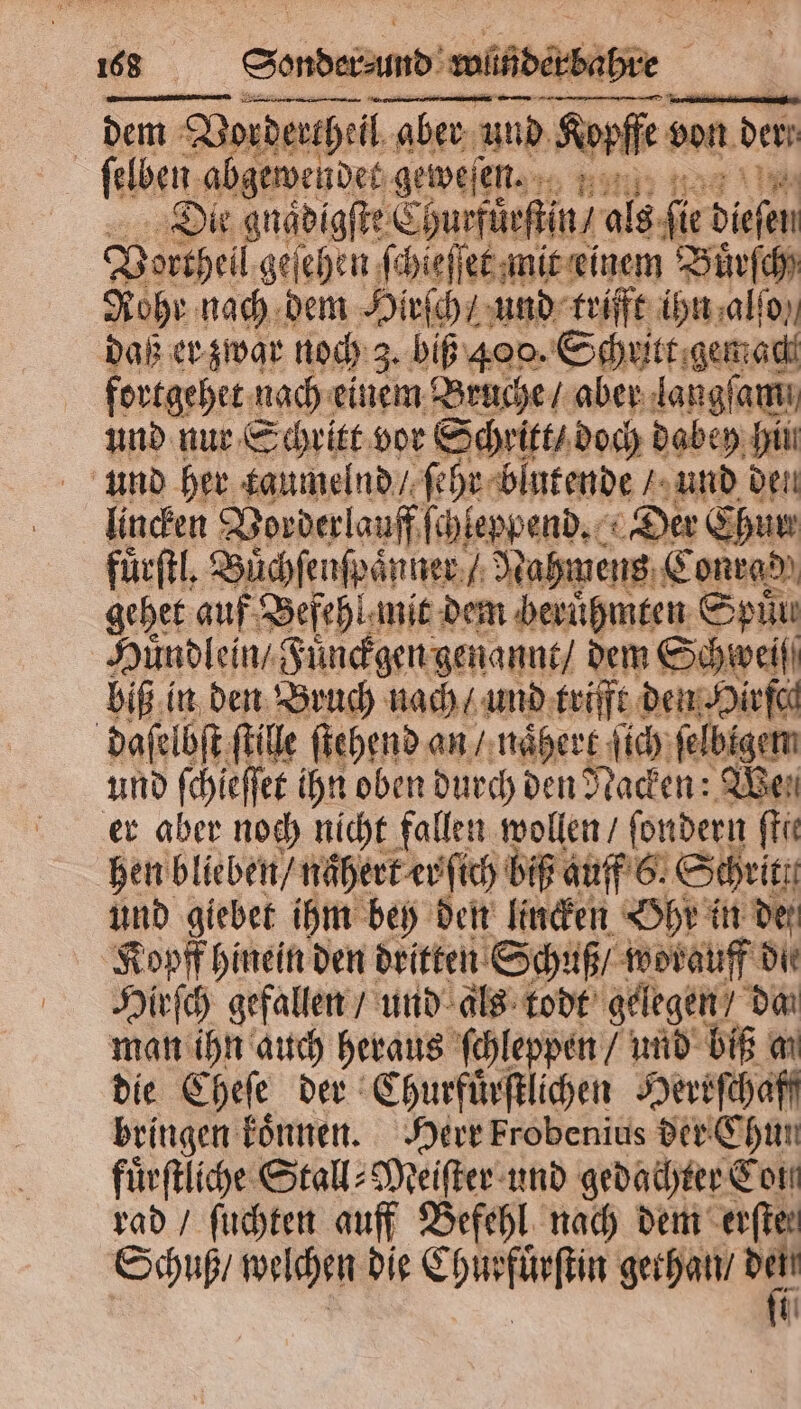 168 Sonder⸗und wunderbahre
dem Vordertheil aber und Kopffe von der
ſelben abgewendet geweſen.
Die gnaͤdigſte Churfuͤrſtin / als ſie dieſen
Vortheil geſehen ſchieſſet mit einem Buͤrſch
Rohr nach dem Hirſch / und trifft ihn alſo /
daß er zwar noch 3. biß 400. Schritt gemach
fortgehet nach einem Bruche / aber langſam /
und nur Schritt vor Schritt / doch dabey hin
und her taumelnd / ſehr blutende / und den
lincken Vorderlauff ſchleppend. Der Chur
fuͤrſtl. Buͤchſenſpaͤnner / Nahmens Conrad
gehet auf Befehl mit dem beruͤhmten Spuͤr
Huͤndlein / Fuͤnckgen genannt / dem Schweiß
biß in den Bruch nach / und trifft den Hirſch
daſelbſt ſtille ſtehend an / naͤhert ſich ſelbigem
und ſchieſſet ihn oben durch den Nacken: Wei
er aber noch nicht fallen wollen / ſondern ſte
hen blieben / naͤhert er ſich biß auff 6. Schritt
und giebet ihm bey den lincken Ohr in den
Kopff hinein den dritten Schuß / worauff der
Hirſch gefallen / und als todt gelegen / da
man ihn auch heraus ſchleppen / und biß an
die Cheſe der Churfuͤrſtlichen Herrſchafft
bringen koͤnnen. Herr Frobenius der Chur
fuͤrſtliche Stall⸗Meiſter und gedachter Con
rad / ſuchten auff Befehl nach dem erſten
Schuß / welchen die Churfuͤrſtin gethan / den
ſi